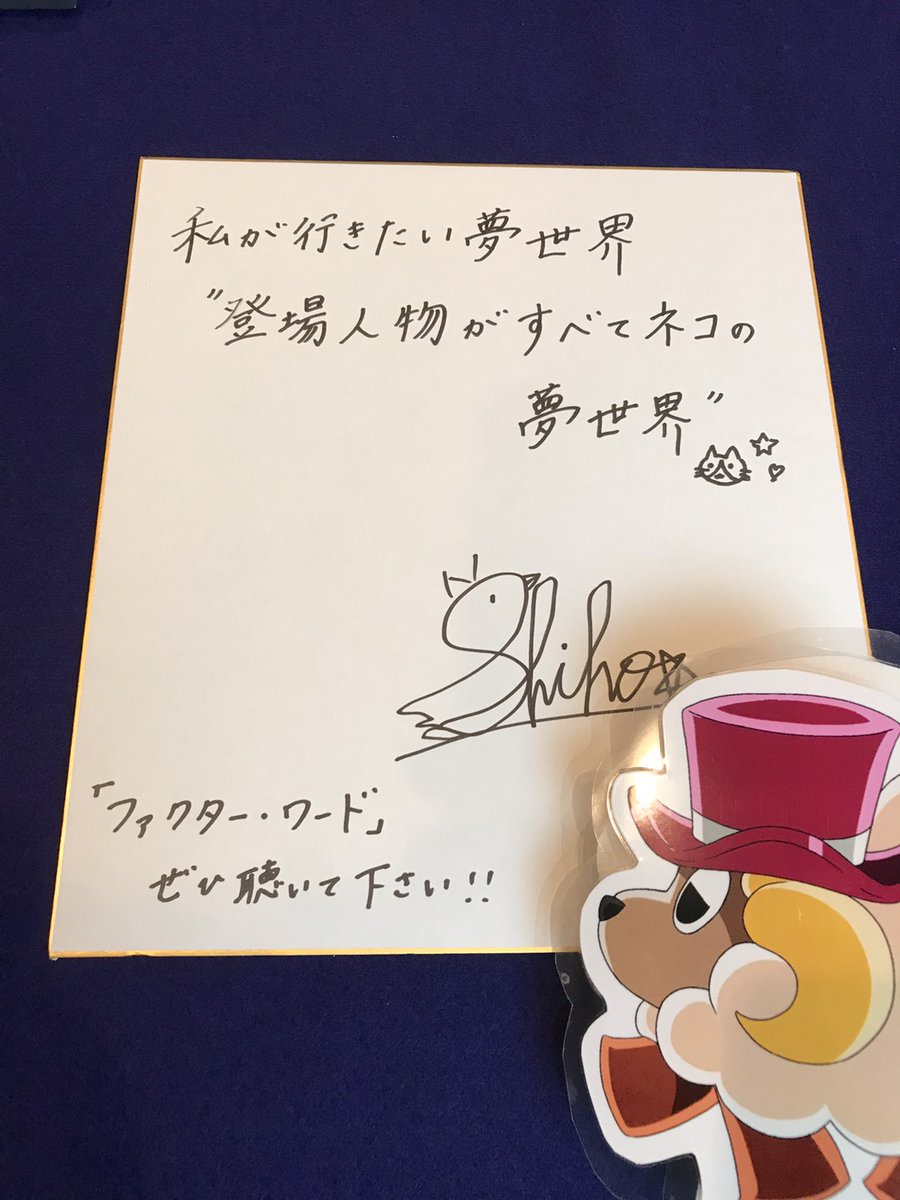 私が行きたい夢世界
"登場人物がすべてネコの
夢世界"
Shiho
「ファクター・ワード」
ぜひ聴いて下さい!!